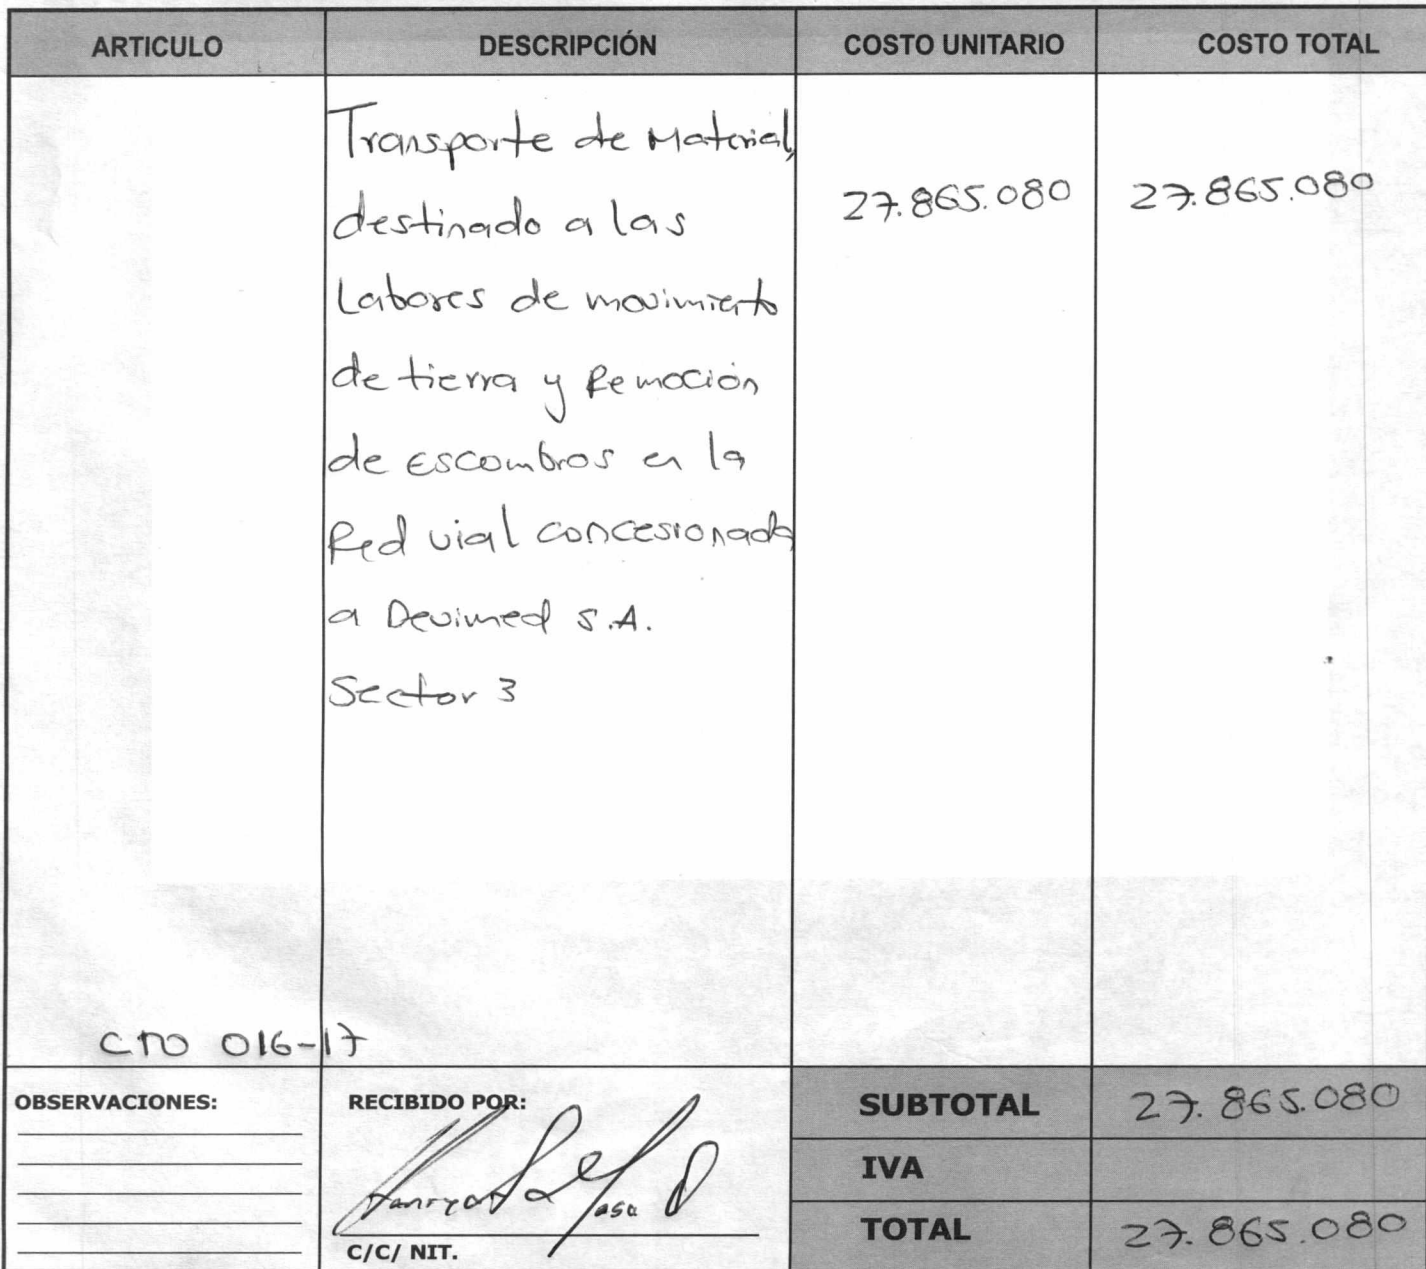 ARTICULO DESCRIPCIÓN COSTO UNITARIO COSTO TOTAL
Transporte de Material,
destinado a las
27.865.080 27.865.080
Labores de movimiento
de tierra y Remoción
de escombros en la
Red vial concesionada
a Devimed S.A.
Sector 3
CTO 016-17
OBSERVACIONES: RECIBIDO POR: SUBTOTAL 27.865.080
IVA
C/C/ NIT. TOTAL 27.865.080